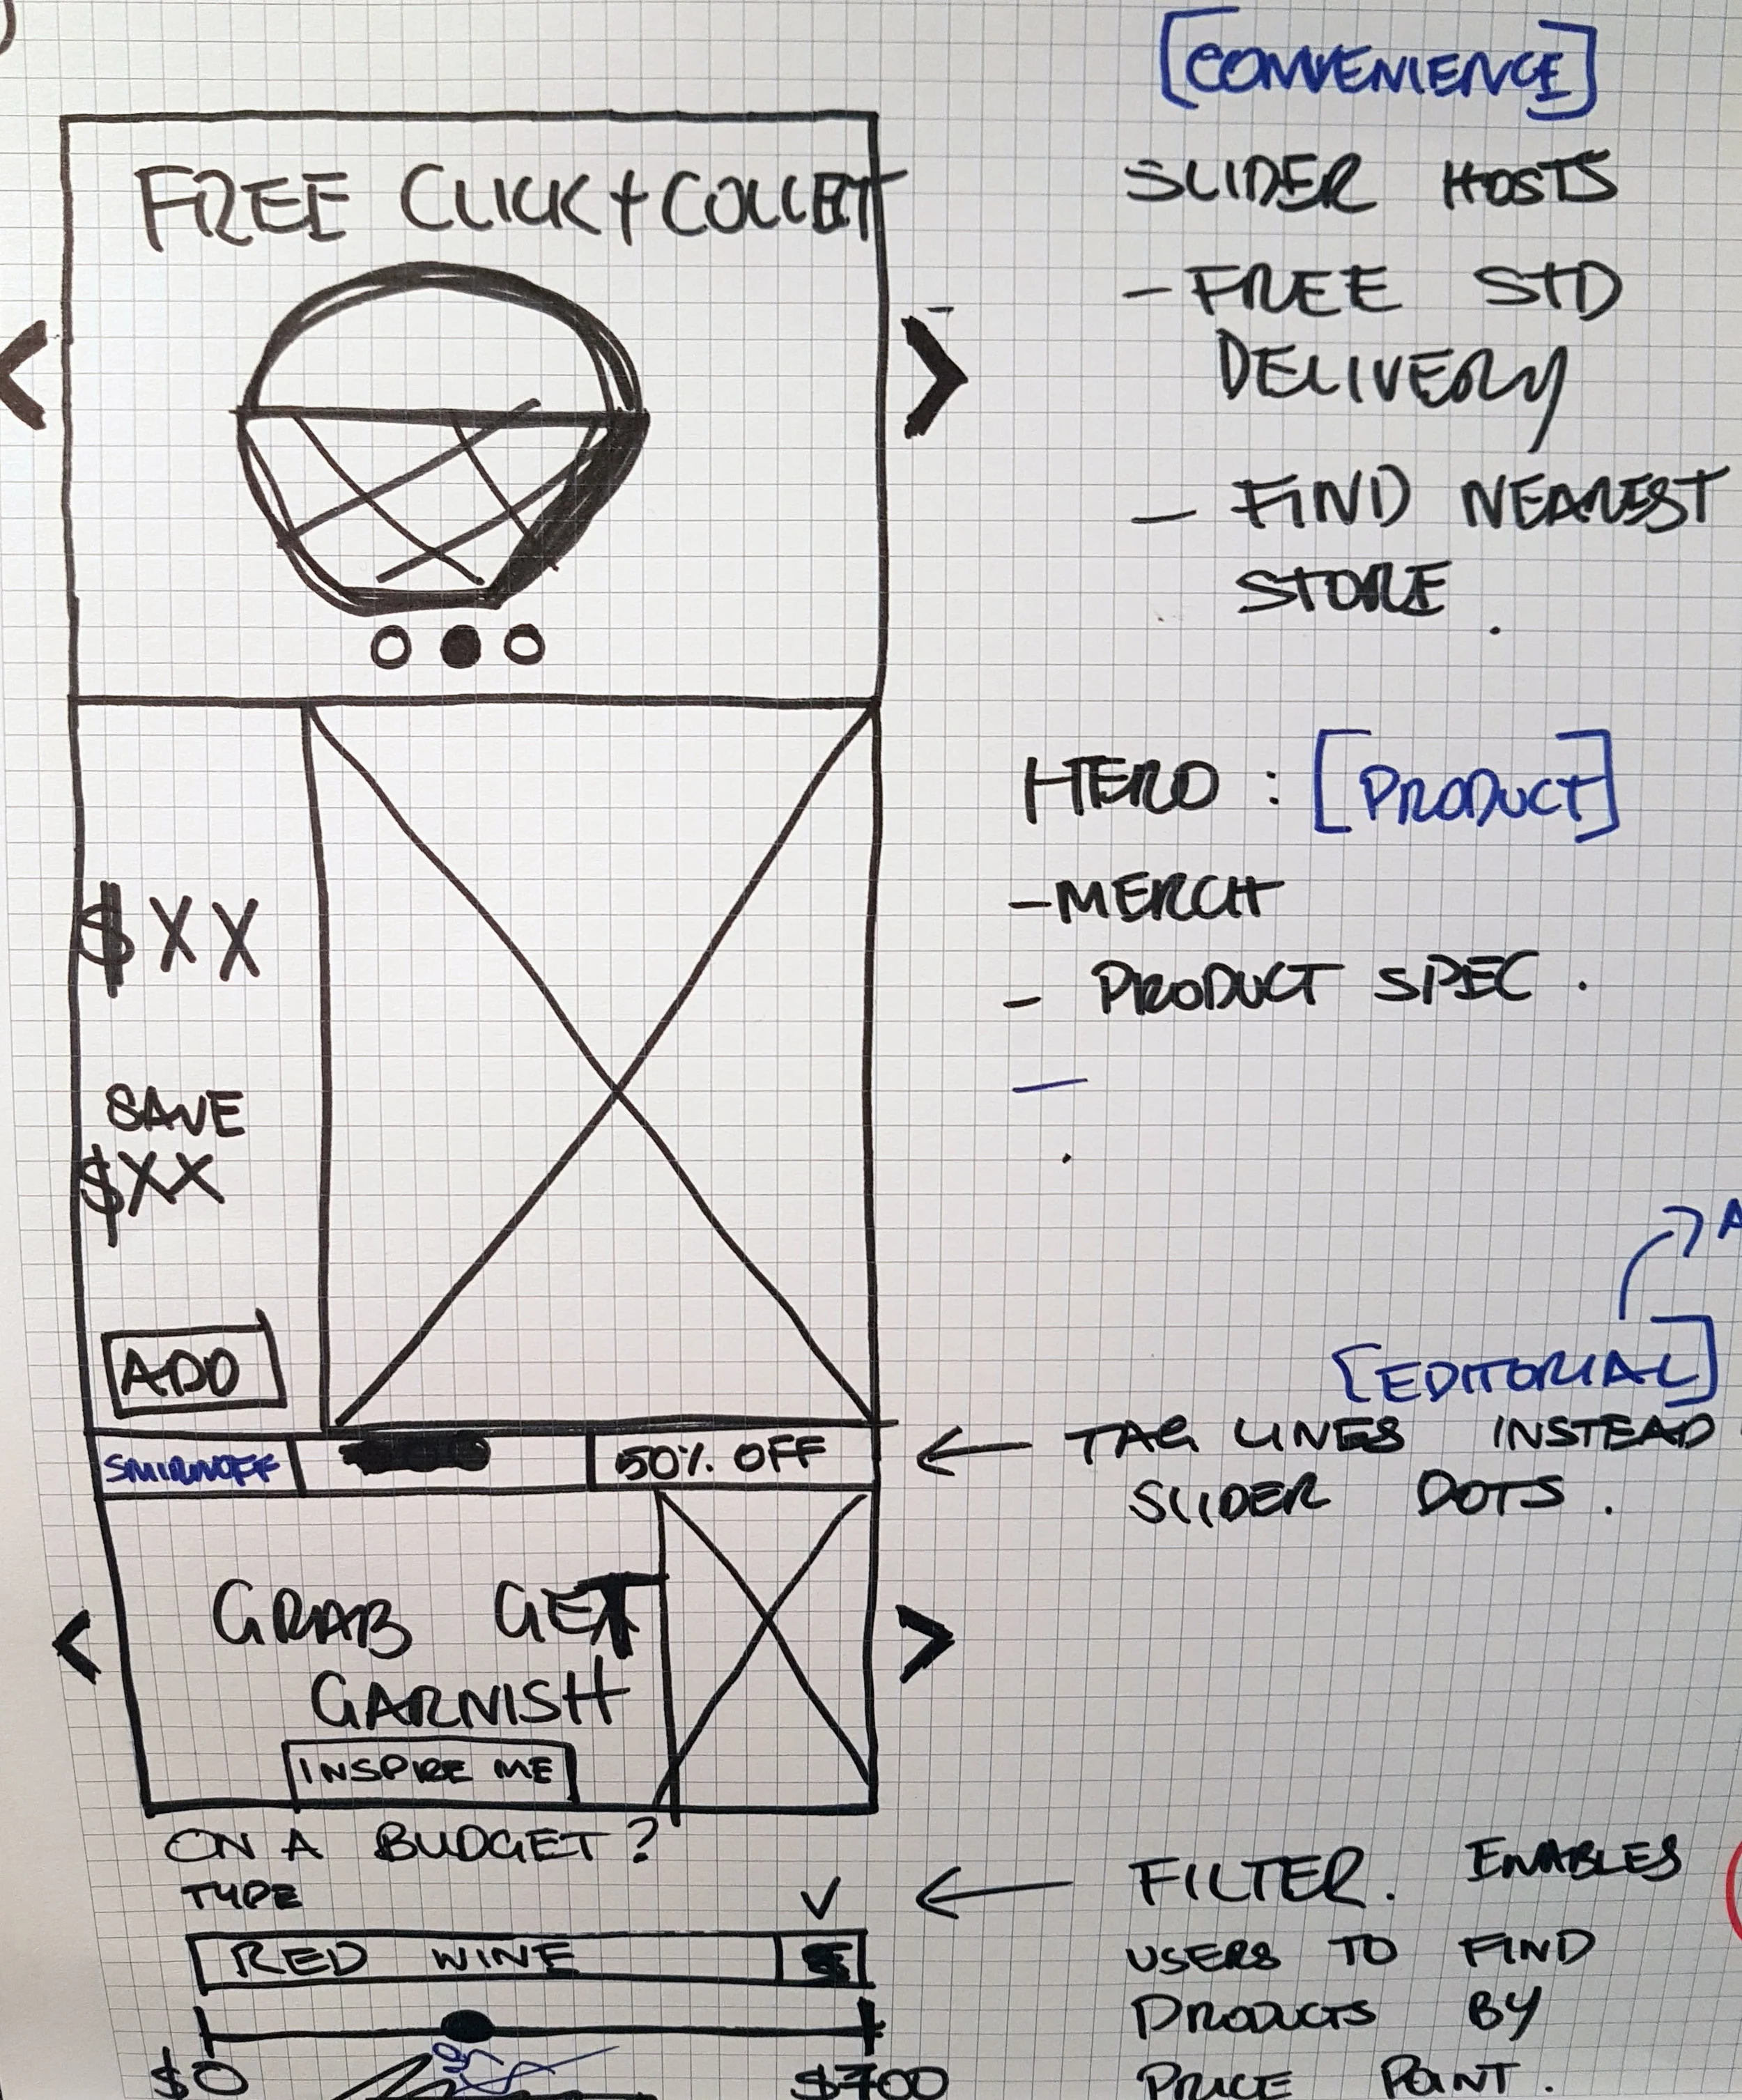 [CONVENIENCE]
FREE CLICK + COLLECT
SLIDER HOSTS
- FREE STD
DELIVERY
- FIND NEAREST
STORE.
<
>
HERO : [PRODUCT]
- MERCH
- PRODUCT SPEC.
-
$XX
SAVE
$XX
ADD
A
[EDITORIAL]
SMIRNOFF
50% OFF
← TAG LINES INSTEAD
SLIDER DOTS.
GRAB GET
GARNISH
INSPIRE ME
<
>
ON A BUDGET?
TYPE
RED WINE
$0
$700
← FILTER. ENABLES
USERS TO FIND
PRODUCTS BY
PRICE POINT.